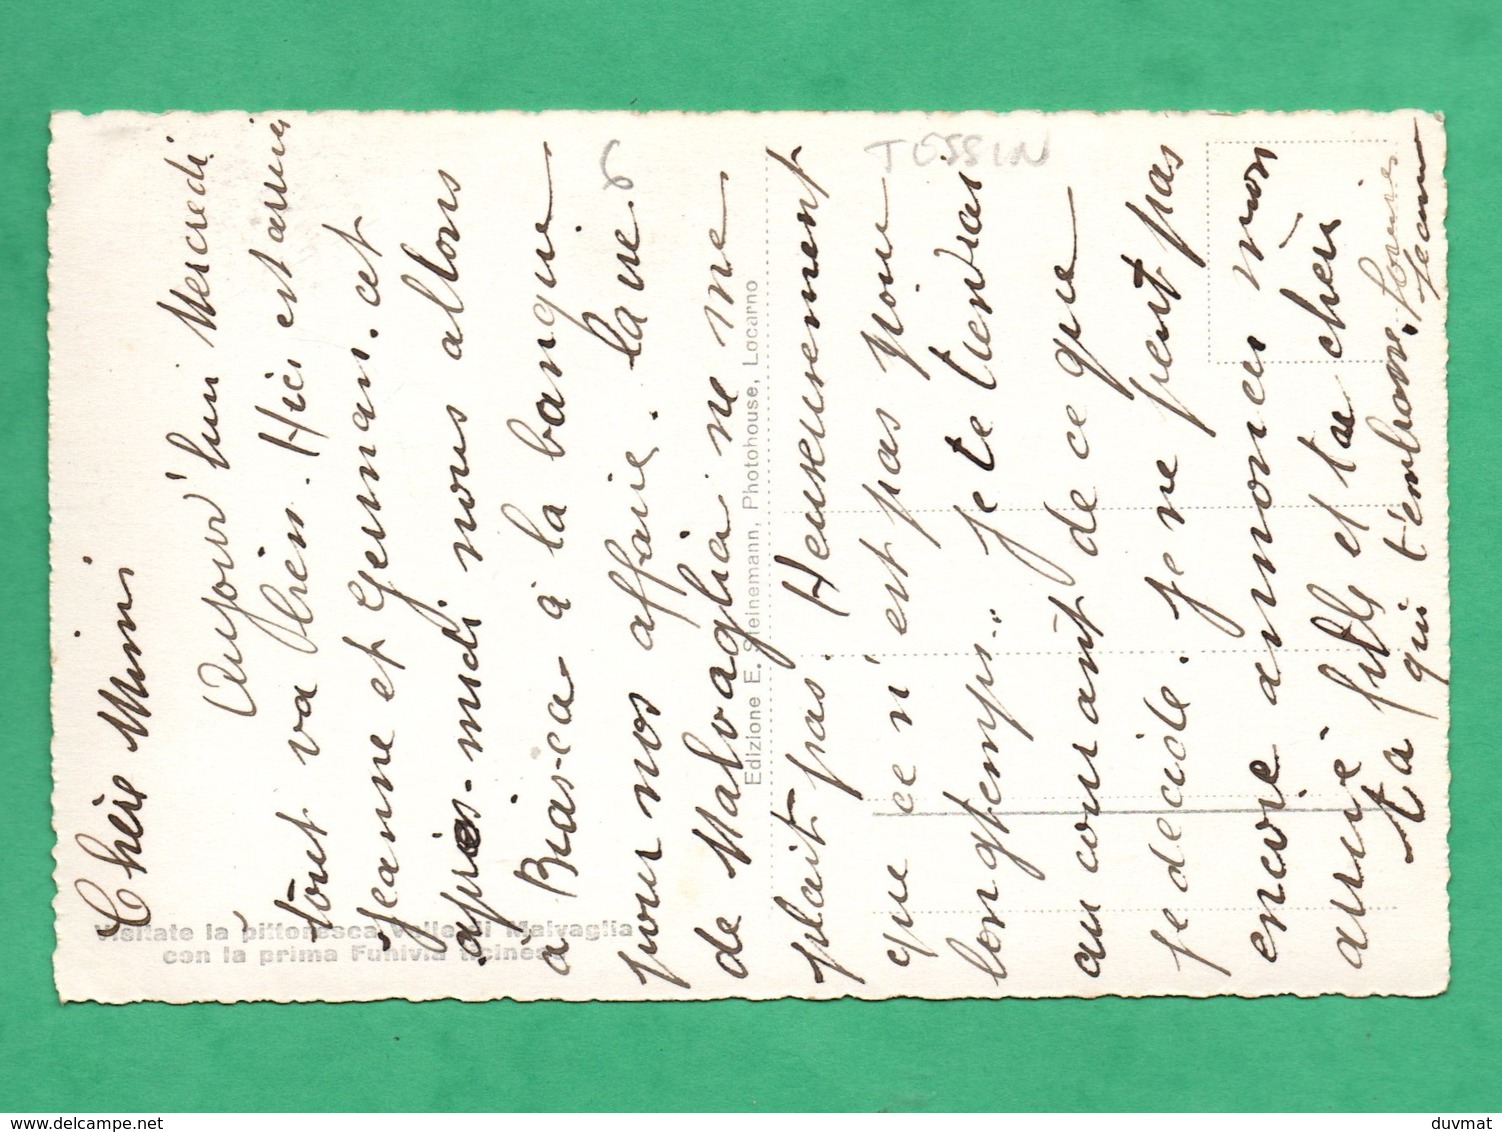 Chère Mimi
Aujour'hui Mercredi
tout va bien. Hier est arrivé
Jeanne et German. cet
après-midi nous allons
à Biasca à la banque
pour nos affaire. la vie
de Malvaglia ne me
plait pas. Heureusement
que ce n'est pas pour
longtemps.. je te tiendrai
au courant de ce que
je décide. je ne peut pas
encore annoncer mon
arrivé fille et ta chère
ta qui t'embrasse.
Jean
TESSIN
6
Visitate la pittoresca Valle di Malvaglia
con la prima Funivia ticinese
Edizione E. Steinemann, Photohouse, Locarno
delcampe.net
duvmat